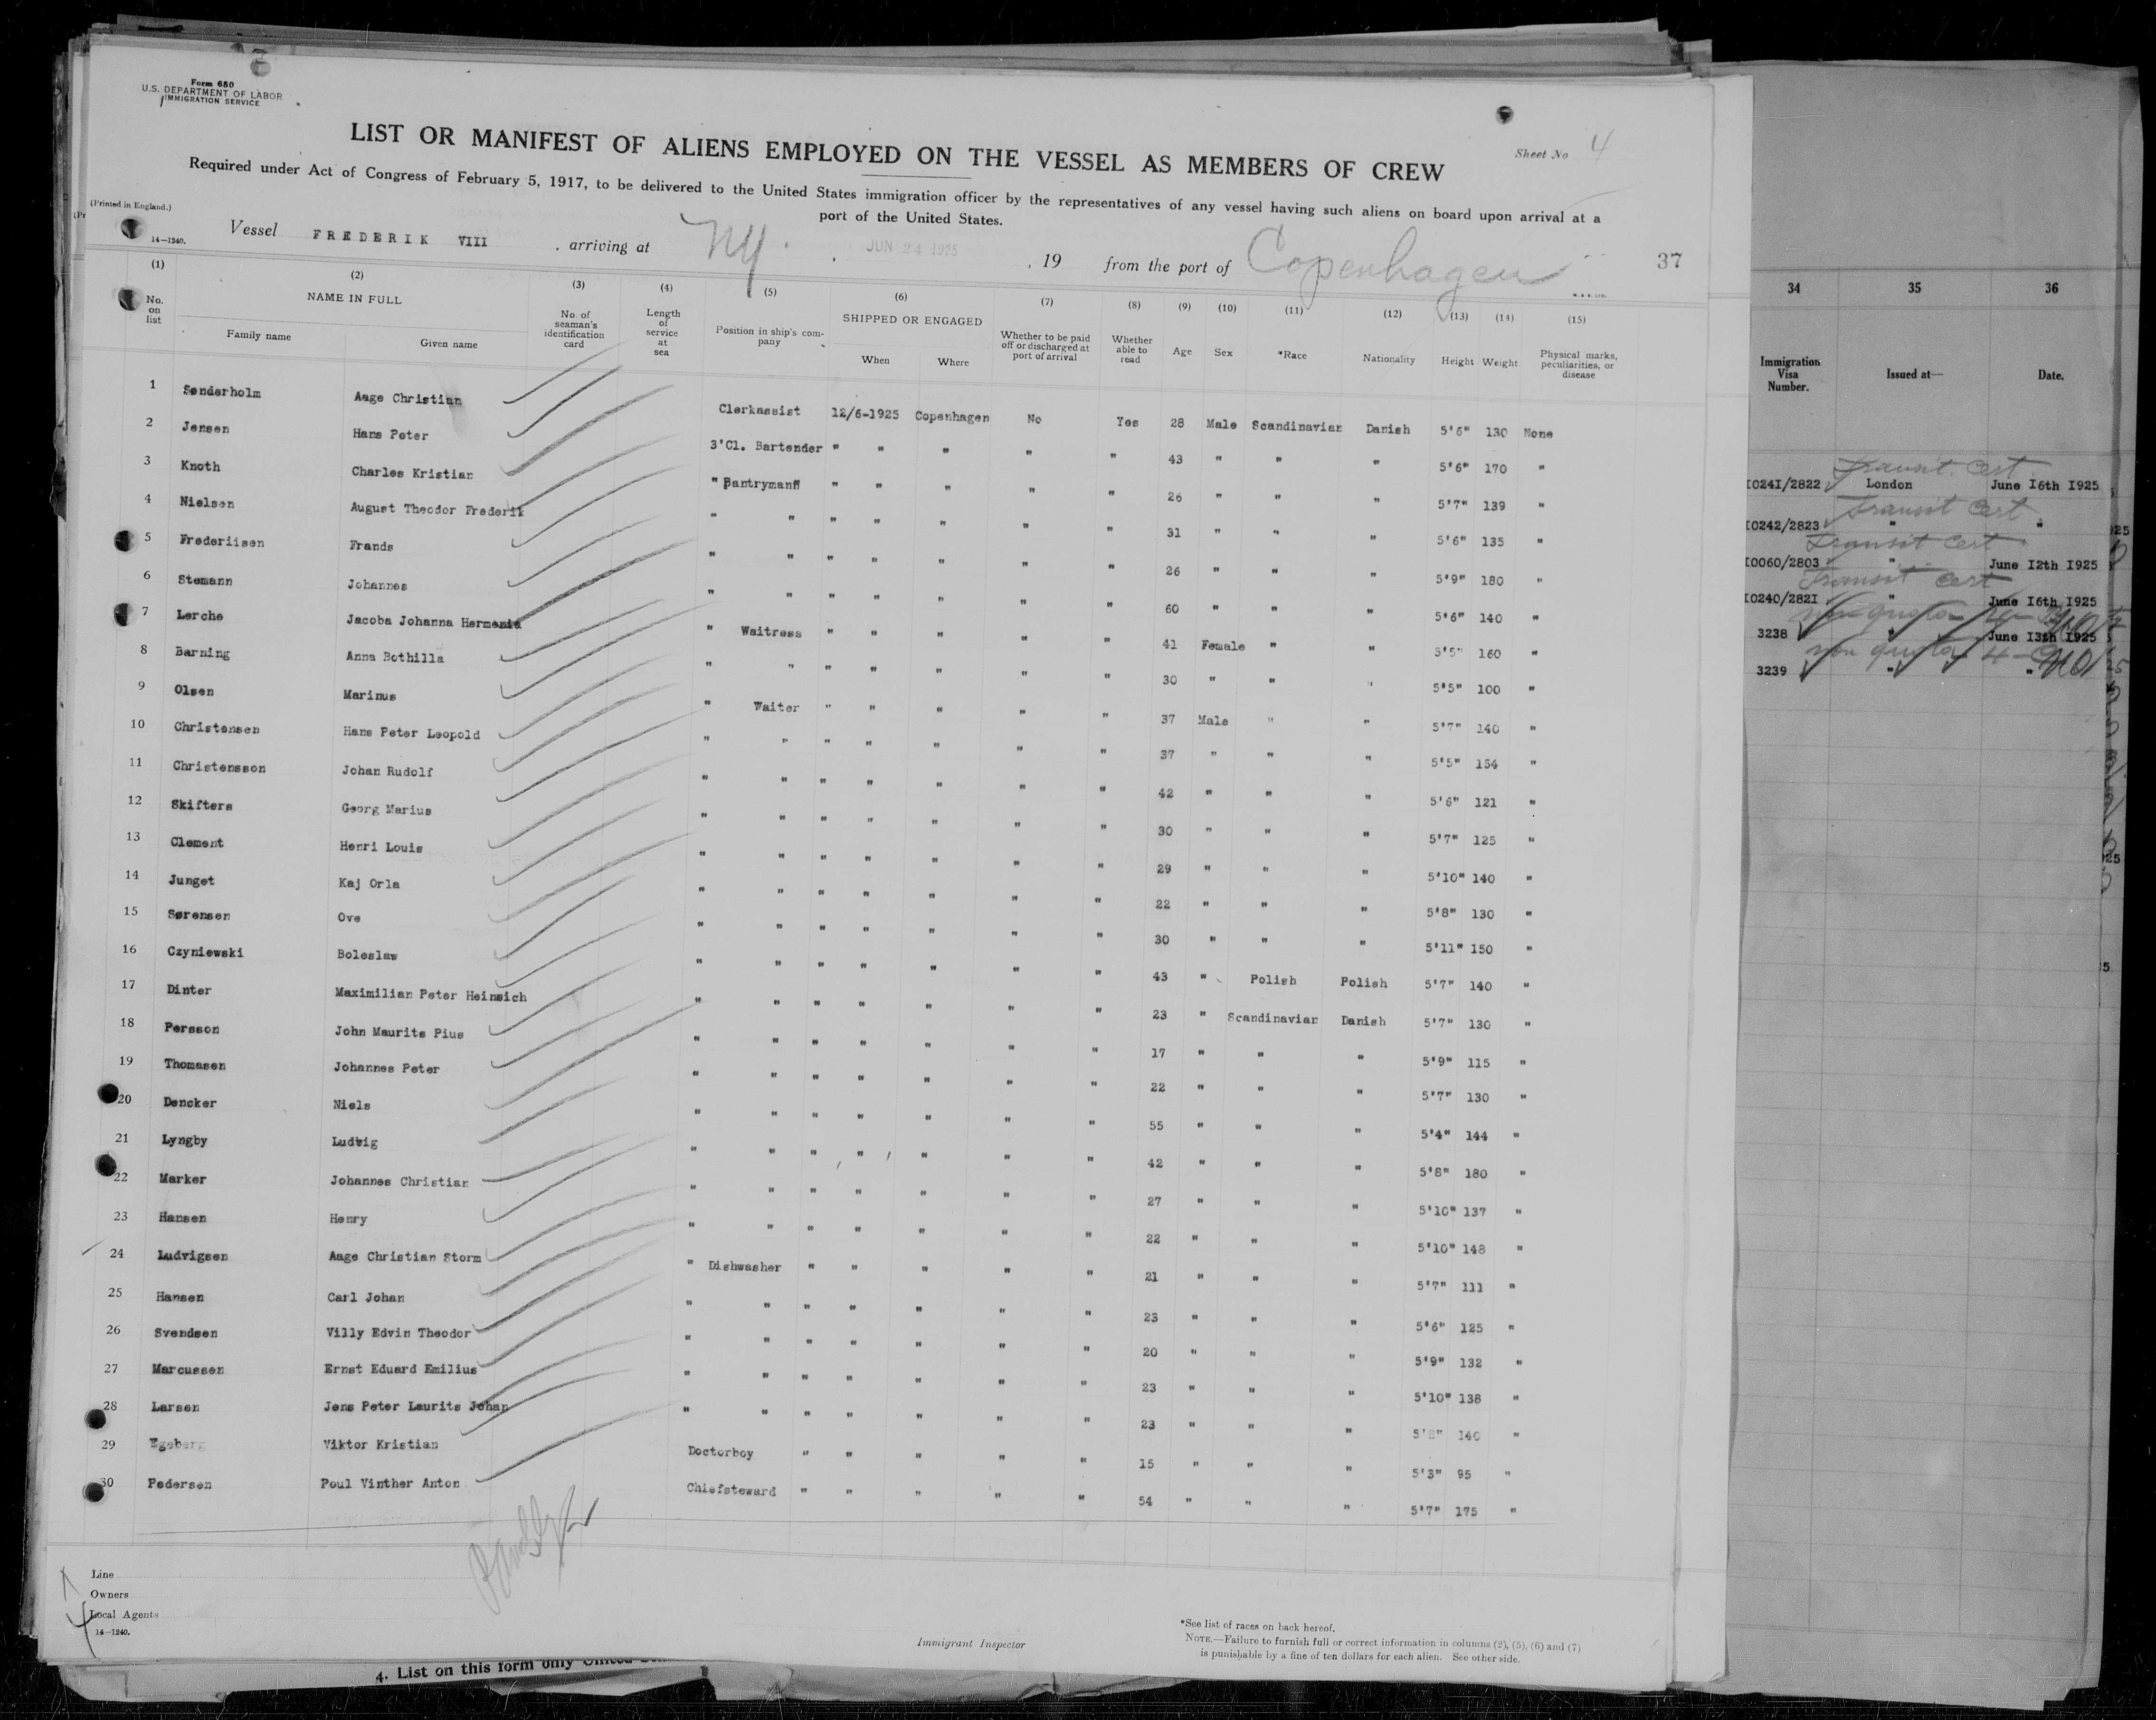 Form 680
U.S. DEPARTMENT OF LABOR
IMMIGRATION SERVICE
Sheet No 4
LIST OR MANIFEST OF ALIENS EMPLOYED ON THE VESSEL AS MEMBERS OF CREW
Required under Act of Congress of February 5, 1917, to be delivered to the United States immigration officer by the representatives of any vessel having such aliens on board upon arrival at a
port of the United States.
(Printed in England.)
14—1240.
Vessel FREDERIK VIII , arriving at NY. JUN 24 1925 , 19 from the port of Copenhagen 37
(1) (2) (3) (4) (5) (6) (7) (8) (9) (10) (11) (12) (13) (14) (15)
No. on list NAME IN FULL Family name Given name No. of seaman's identification card Length of service at sea Position in ship's company SHIPPED OR ENGAGED When Where Whether to be paid off or discharged at port of arrival Whether able to read Age Sex *Race Nationality Height Weight Physical marks, peculiarities, or disease
1 Sønderholm Aage Christian Clerkassist 12/6-1925 Copenhagen No Yes 28 Male Scandinavian Danish 5'6" 130 None
2 Jensen Hans Peter 3'Cl. Bartender " " " " " 43 " " " 5'6" 170 "
3 Knoth Charles Kristian " Pantrymann " " " " " 26 " " " 5'7" 139 "
4 Nielsen August Theodor Frederik " " " " " " " 31 " " " 5'6" 135 "
5 Frederiisen Frands " " " " " " " 26 " " " 5'9" 180 "
6 Stemann Johannes " " " " " " " 60 " " " 5'6" 140 "
7 Lerche Jacoba Johanna Hermenia " Waitress " " " " " 41 Female " " 5'5" 160 "
8 Barning Anna Bothilla " " " " " " " 30 " " " 5'5" 100 "
9 Olsen Marinus " Waiter " " " " " 37 Male " " 5'7" 140 "
10 Christensen Hans Peter Leopold " " " " " " " 37 " " " 5'5" 154 "
11 Christensson Johan Rudolf " " " " " " " 42 " " " 5'6" 121 "
12 Skifters Georg Marius " " " " " " " 30 " " " 5'7" 125 "
13 Clement Henri Louis " " " " " " " 29 " " " 5'10" 140 "
14 Junget Kaj Orla " " " " " " " 22 " " " 5'8" 130 "
15 Sørensen Ove " " " " " " " 30 " " " 5'11" 150 "
16 Czyniewski Boleslaw " " " " " " " 43 " Polish Polish 5'7" 140 "
17 Dinter Maximilian Peter Heinsich " " " " " " " 23 " Scandinavian Danish 5'7" 130 "
18 Persson John Maurits Pius " " " " " " " 17 " " " 5'9" 115 "
19 Thomasen Johannes Peter " " " " " " " 22 " " " 5'7" 130 "
20 Dencker Niels " " " " " " " 55 " " " 5'4" 144 "
21 Lyngby Ludvig " " " " " " " 42 " " " 5'8" 180 "
22 Marker Johannes Christian " " " " " " " 27 " " " 5'10" 137 "
23 Hansen Henry " " " " " " " 22 " " " 5'10" 148 "
24 Ludvigsen Aage Christian Storm " Dishwasher " " " " " 21 " " " 5'7" 111 "
25 Hansen Carl Johan " " " " " " " 23 " " " 5'6" 125 "
26 Svendsen Villy Edvin Theodor " " " " " " " 20 " " " 5'9" 132 "
27 Marcussen Ernst Eduard Emilius " " " " " " " 23 " " " 5'10" 138 "
28 Larsen Jens Peter Laurits Johan " " " " " " " 23 " " " 5'8" 140 "
29 Egeberg Viktor Kristian Doctorboy " " " " " 15 " " " 5'3" 95 "
30 Pedersen Poul Vinther Anton Chiefsteward " " " " " 54 " " " 5'7" 175 "
Line
Owners
Local Agents
14—1240.
Immigrant Inspector
*See list of races on back hereof.
NOTE.—Failure to furnish full or correct information in columns (2), (5), (6) and (7)
is punishable by a fine of ten dollars for each alien. See other side.
4. List on this form only United
34 35 36
Immigration Visa Number. Issued at— Date.
Transit Cert.
I024I/2822 London June I6th I925
Transit Cert
I0242/2823 " "
Transit Cert
I0060/2803 " June I2th I925
Transit Cert
I0240/282I " June I6th I925
non quota
3238 " June I3th I925
non quota
3239 " "